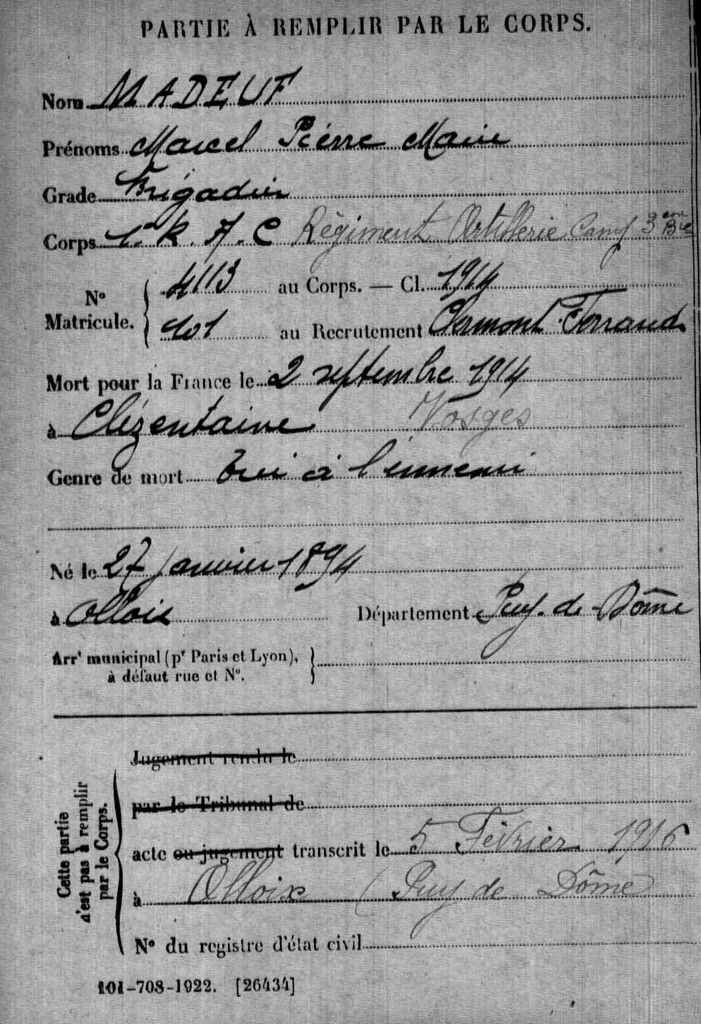 PARTIE À REMPLIR PAR LE CORPS.
Nom MADEUF
Prénoms Marcel Pierre Marie
Grade Brigadier
Corps 1er R. A. C Régiment Artillerie Camp 3eme Bie
No Matricule. { 4113 au Corps. — Cl. 1914
101 au Recrutement Clermont-Ferrand
Mort pour la France le 2 septembre 1914
à Clézentaine Vosges
Genre de mort tué à l'ennemi
Né le 27 janvier 1894
à Olloix Département Puy-de-Dôme
Arrt municipal (pr Paris et Lyon), }
à défaut rue et No.
Cette partie n'est pas à remplir par le Corps.
Jugement rendu le
par le Tribunal de
acte ou jugement transcrit le 5 Février 1916
à Olloix (Puy de Dôme
No du registre d'état civil
101-708-1922. [26434]